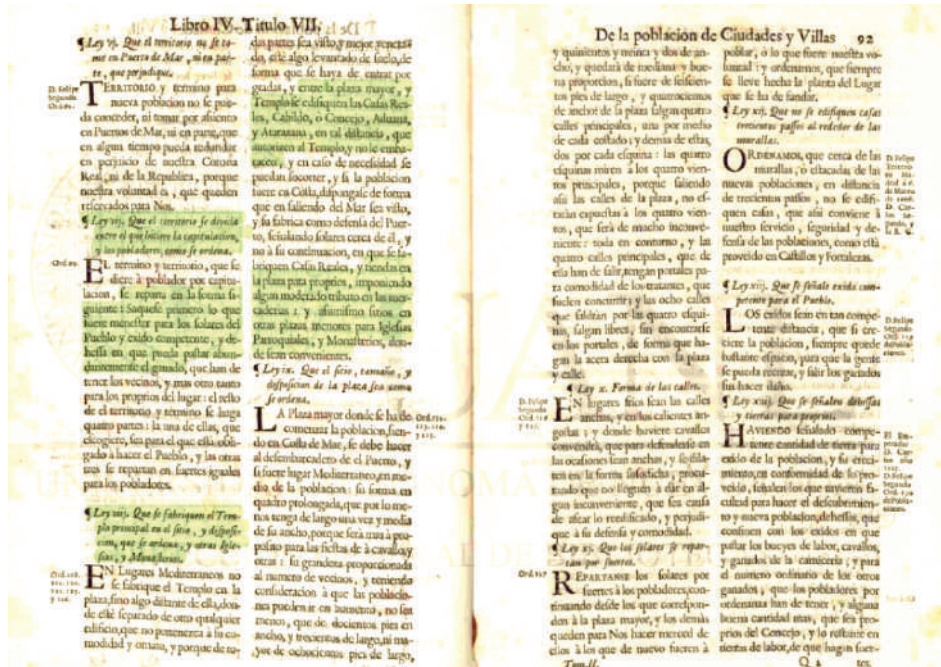 Libro IV. Titulo VII.
¶ Ley vj. Que el territorio no se to-
me en Puerto de Mar, ni en par-
te, que perjudique.
D. Felipe
Segundo
TERRITORIO y termino para
nueva poblacion no se pue-
da conceder, ni tomar por assiento
en Puertos de Mar, ni en parte, que
en algun tiempo pueda redundar
en perjuicio de nuestra Corona
Real, ni de la Republica, porque
nuestra voluntad es, que queden
reservados para Nos.
¶ Ley vij. Que el territorio se divida
entre el que hiciere la capitulacion,
y los pobladores, como se ordena.
EL termino y territorio, que se
diere à poblador por capitu-
lacion, se reparta en la forma si-
guiente: Saquese primero lo que
fuere menester para los solares del
Pueblo y exido competente, y de-
hessa en que pueda pastar abun-
dantemente el ganado, que han de
tener los vecinos, y mas otro tanto
para los proprios del lugar: el resto
de el territorio y termino se haga
quatro partes: la una de ellas, que
escogiere, sea para el que está obli-
gado à hacer el Pueblo, y las otras
tres se repartan en suertes iguales
para los pobladores.
¶ Ley viij. Que se fabriquen el Tem-
plo principal en el sitio, y disposi-
cion, que se ordena, y otras Igle-
sias, y Monasterios.
EN Lugares Mediterraneos no
se fabrique el Templo en la
plaza, sino algo distante de ella, don-
de esté separado de otro qualquier
edificio, que no pertenezca à su co-
modidad y ornato, y porque de to-
das partes sea visto, y mejor venera-
do, esté algo levantado de suelo, de
forma que se haya de entrar por
gradas, y entre la plaza mayor, y
Templo se edifiquen las Casas Rea-
les, Cabildo, ò Concejo, Aduana,
y Atarazana, en tal distancia, que
autoricen al Templo, y no le emba-
racen, y en caso de necesidad se
puedan socorrer, y si la poblacion
fuere en Costa, dispongase de forma
que en saliendo del Mar sea visto,
y su fabrica como defensa del Puer-
to, señalando solares cerca de él, y
no à su continuacion, en que se fa-
briquen Casas Reales, y tiendas en
la plaza para proprios, imponiendo
algun moderado tributo en las mer-
caderias: y assimismo sitios en
otras plazas menores para Iglesias
Parroquiales, y Monasterios, don-
de sean convenientes.
¶ Ley ix. Que el sitio, tamaño, y
disposicion de la plaza sea como
se ordena.
LA Plaza mayor donde se ha de
comenzar la poblacion, sien-
do en Costa de Mar, se debe hacer
al desembarcadero de el Puerto, y
si fuere lugar Mediterraneo, en me-
dio de la poblacion: su forma en
quadro prolongada, que por lo me-
nos tenga de largo una vez y media
de su ancho, porque será mas à pro-
posito para las fiestas de à cavallo, y
otras: su grandeza proporcionada
al numero de vecinos, y teniendo
consideracion à que las poblacio-
nes pueden ir en aumento, no sea
menos, que de docientos pies en
ancho, y trecientos de largo, ni ma-
yor de ochocientos pies de largo,
De la poblacion de Ciudades y Villas 92
y quinientos y treinta y dos de an-
cho, y quedará de mediana y bue-
na proporcion, si fuere de seiscien-
tos pies de largo, y quatrocientos
de ancho: de la plaza salgan quatro
calles principales, una por medio
de cada costado; y demás de estas,
dos por cada esquina: las quatro
esquinas miren à los quatro vien-
tos principales, porque saliendo
assi las calles de la plaza, no es-
tarán expuestas à los quatro vien-
tos, que será de mucho inconve-
niente: toda en contorno, y las
quatro calles principales, que de
ella han de salir, tengan portales pa-
ra comodidad de los tratantes, que
suelen concurrir; y las ocho calles
que saldrán por las quatro esqui-
nas, salgan libres, sin encontrarse
en los portales, de forma que ha-
gan la acera derecha con la plaza
y calle.
¶ Ley x. Forma de las calles.
EN lugares frios sean las calles
anchas, y en los calientes an-
gostas; y donde huviere cavallos
convendrá, que para defenderse en
las ocasiones sean anchas, y se dila-
ten en la forma susodicha, procu-
rando que no lleguen à dàr en al-
gun inconveniente, que sea causa
de afear lo reedificado, y perjudi-
que à su defensa y comodidad.
¶ Ley xj. Que los solares se repar-
tan por suertes.
REPARTANSE los solares por
suertes à los pobladores, con-
tinuando desde los que correspon-
den à la plaza mayor, y los demás
queden para Nos hacer merced de
ellos à los que de nuevo fueren à
Tom. II.
poblar, ò lo que fuere nuestra vo-
luntad: y ordenamos, que siempre
se lleve hecha la planta del Lugar
que se ha de fundar.
¶ Ley xij. Que no se edifiquen casas
trecientos passos al rededor de las
murallas.
ORDENAMOS, que cerca de las
murallas, ò estacadas de las
nuevas poblaciones, en distancia
de trecientos passos, no se edifi-
quen casas, que assi conviene à
nuestro servicio, seguridad y de-
fensa de las poblaciones, como está
proveido en Castillos y Fortalezas.
¶ Ley xiij. Que se señale exido com-
petente para el Pueblo.
LOS exidos sean en tan compe-
tente distancia, que si cre-
ciere la poblacion, siempre quede
bastante espacio, para que la gente
se pueda recrear, y salir los ganados
sin hacer daño.
¶ Ley xiiij. Que se señalen dehessas
y tierras para proprios.
HAVIENDO señalado compe-
tente cantidad de tierra para
exido de la poblacion, y su creci-
miento, en conformidad de lo pro-
veido, señalen los que tuvieren fa-
cultad para hacer el descubrimien-
to y nueva poblacion, dehessas, que
confinen con los exidos en que
pastar los bueyes de labor, cavallos,
y ganados de la carniceria; y para
el numero ordinario de los otros
ganados, que los pobladores por
ordenanza han de tener, y alguna
buena cantidad mas, que sea pro-
prios del Concejo, y lo restante en
tierras de labor, de que hagan suer-